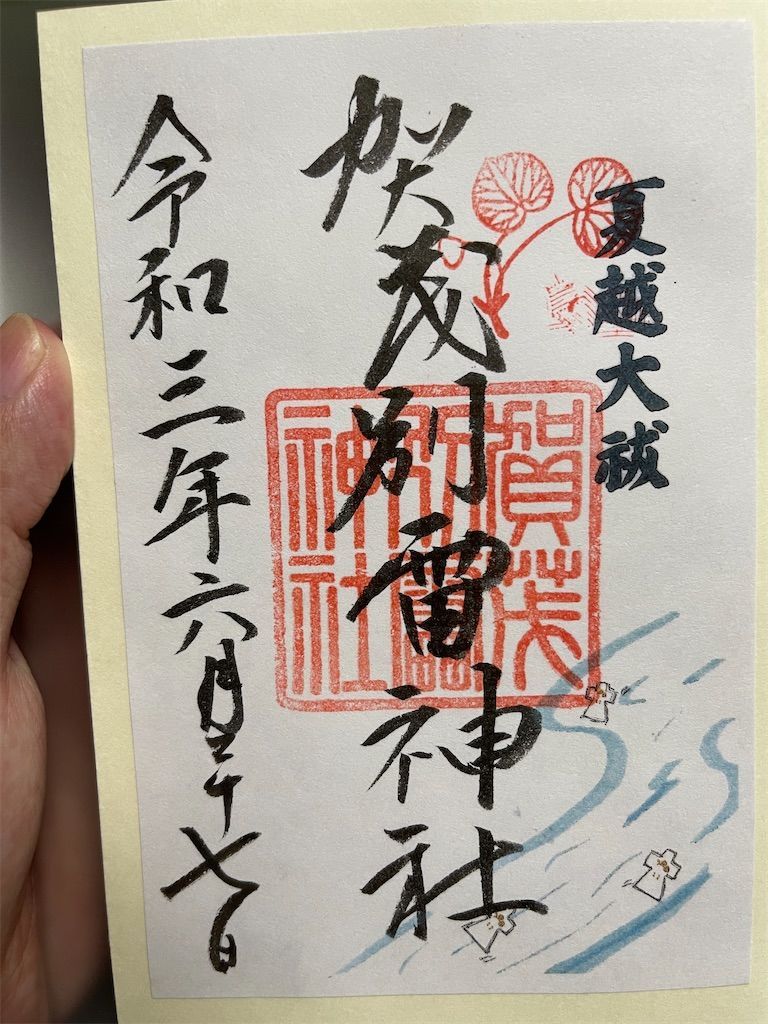 夏越大祓
賀茂別雷神社
賀茂
別雷
神社
令和三年六月二十七日